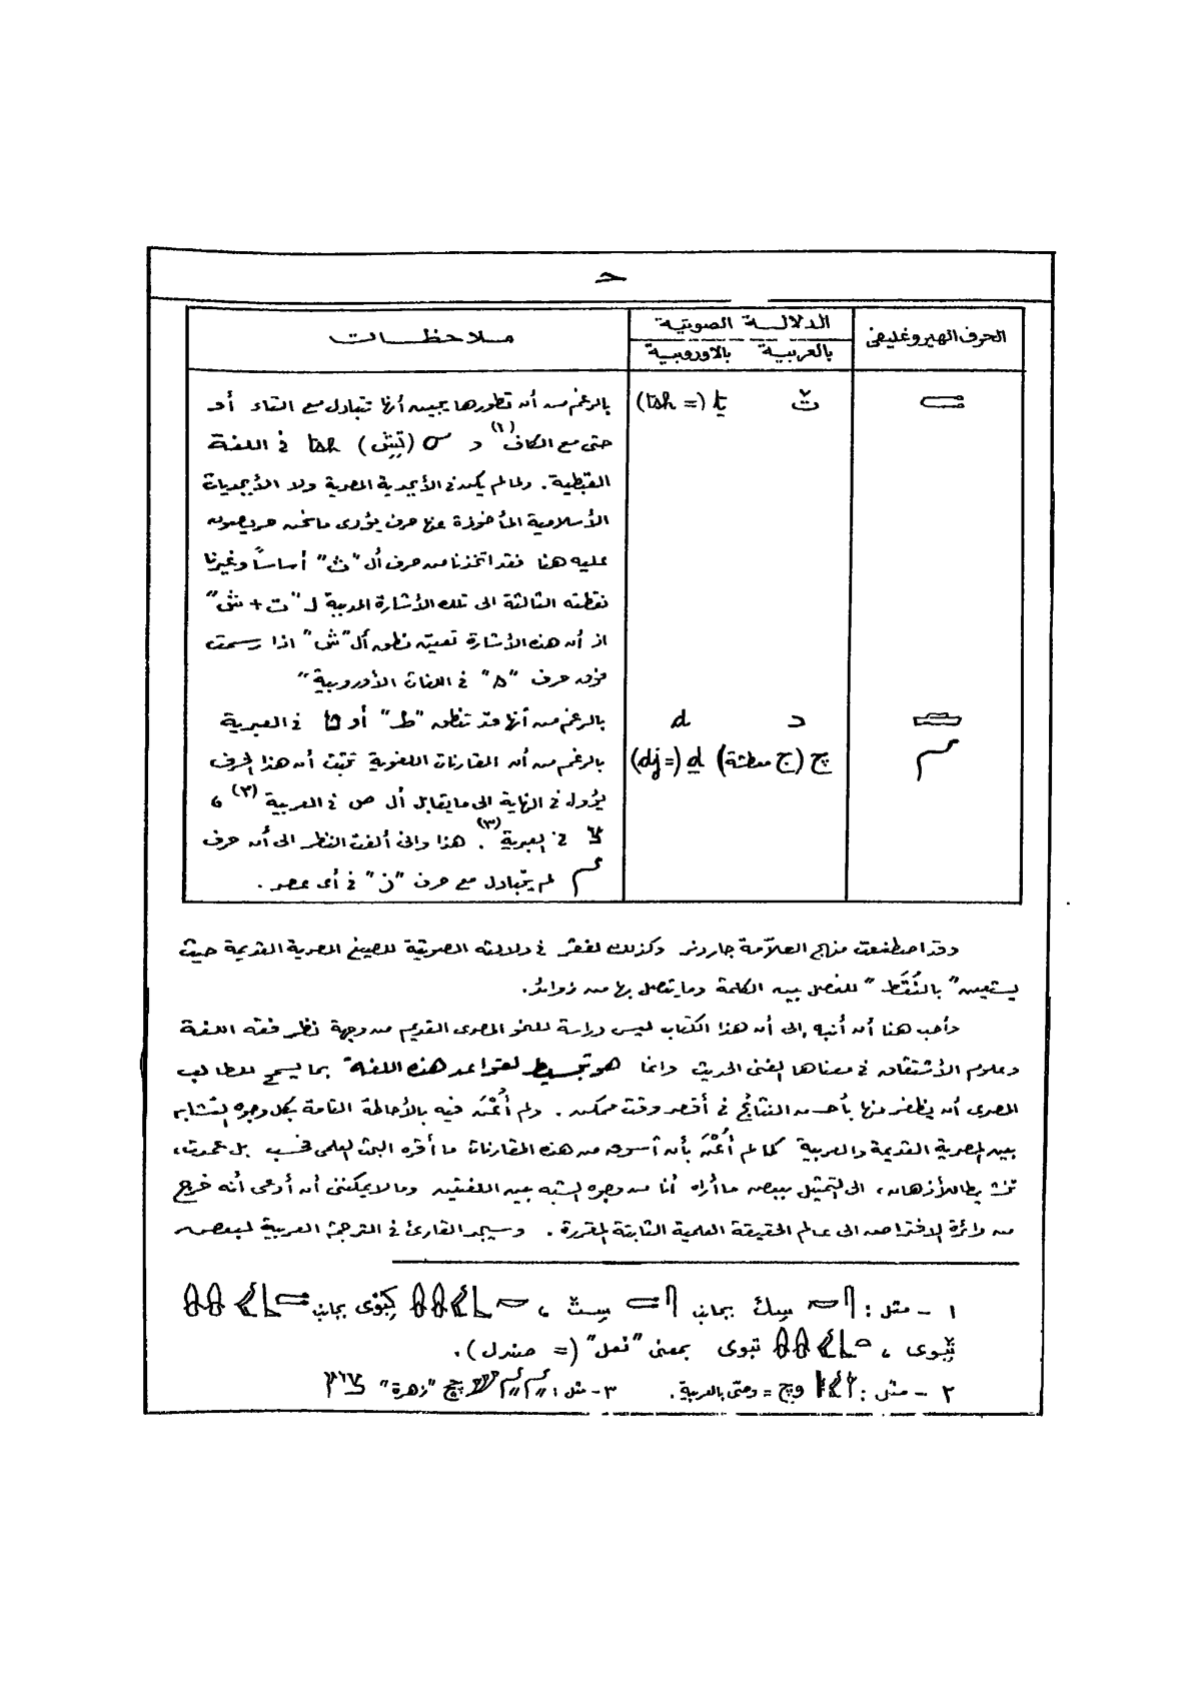 ح
الحرف الهيروغليفى
الدلالة الصوتية
بالعربية بالأوروبية
ملاحظات
ṯ (= tsh)
بالرغم من أن تطورها يجيز أنها تتبادل مع التاء أو
حتى مع الكاف (١) و (تِش) tsh فى اللغة
القبطية. ولما لم يكن فى الأبجدية المصرية ولا الأبجديات
الأسلامية المأخوذة عنها حرف يؤدى ما نحن حريصون
عليه هنا فقد اتخذنا من حرف أل "ث" أساساً وغيرنا
نقطته الثالثة الى تلك الأشارة المدببة لـ "ت + ش"
اذ أن هذه الأشارة تعنى نطق أل "ش" اذا رسمت
فوق حرف "s" فى اللغات الأوروبية"
د d
بالرغم من أنها قد تنطق "ط" أو ט فى العبرية
چ (ج معطشة) ḏ (= dj)
بالرغم من أن المقارنات اللغوية تثبت أن هذا الحرف
يؤول فى النهاية الى ما يقابل أل ص فى العربية (٢) ،
צ فى العبرية (٣). هذا وانى ألفت النظر الى أن حرف
لم يتبادل مع حرف "ز" فى أى عصر.
وقد اصطنعت منهاج العلاّمة جاردنر وكذلك لفقر فى دلالاته الصوتية للصيغ المصرية القديمة حيث
يستعين "بالنُقَط" للفصل بين الكلمة وما يتصل بها من زوائد.
وأحب هنا أن أنبه الى أن هذا الكتاب ليس دراسة للنحو المصرى القديم من وجهة نظر فقه اللغة
وعلوم الأشتقاق فى معناها الفنى الحديث وانما هو تبسيط لقواعد هذه اللغة بما يسمح للطالب
المصرى أن يظفر منها بأحسن النتائج فى أقصر وقت ممكن. ولم أُعْنَ فيه بالأحاطة التامة بكل وجوه التشابه
بين المصرية القديمة والعربية كما لم أُعْنَ بأن أسوق من هذه المقارنات ما أقره البحث العلمى فحسب بل عمدت،
تنشيطا للأذهان، الى التمثيل ببعض ما أراه أنا من وجوه الشبه بين اللغتين ومما لا يمكننى أن أدعى أنه خرج
من دائرة الافتراض الى عالم الحقيقة العلمية الثابتة المقررة. وسيجد القارئ فى الترجمة العربية لبعض
١ - مثل: سِك بجانب سِث ، كِبْوى بجانب
ثِبوى ، تبوى بمعنى "نعل" (= صندل).
٢ - مثل: وچ = وحتى بالعربية. ٣ - مثل: چچ "زهرة" ציץ